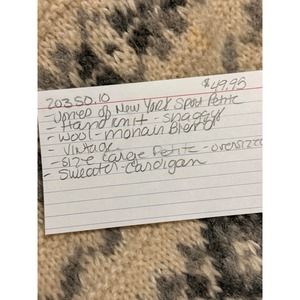 $49.95
20350.10
-Jones of New York Sport Petite
-Hand knit - shaggy
-Wool-mohair Blend
-Vintage
-Size Large Petite - oversized
-Sweater-Cardigan